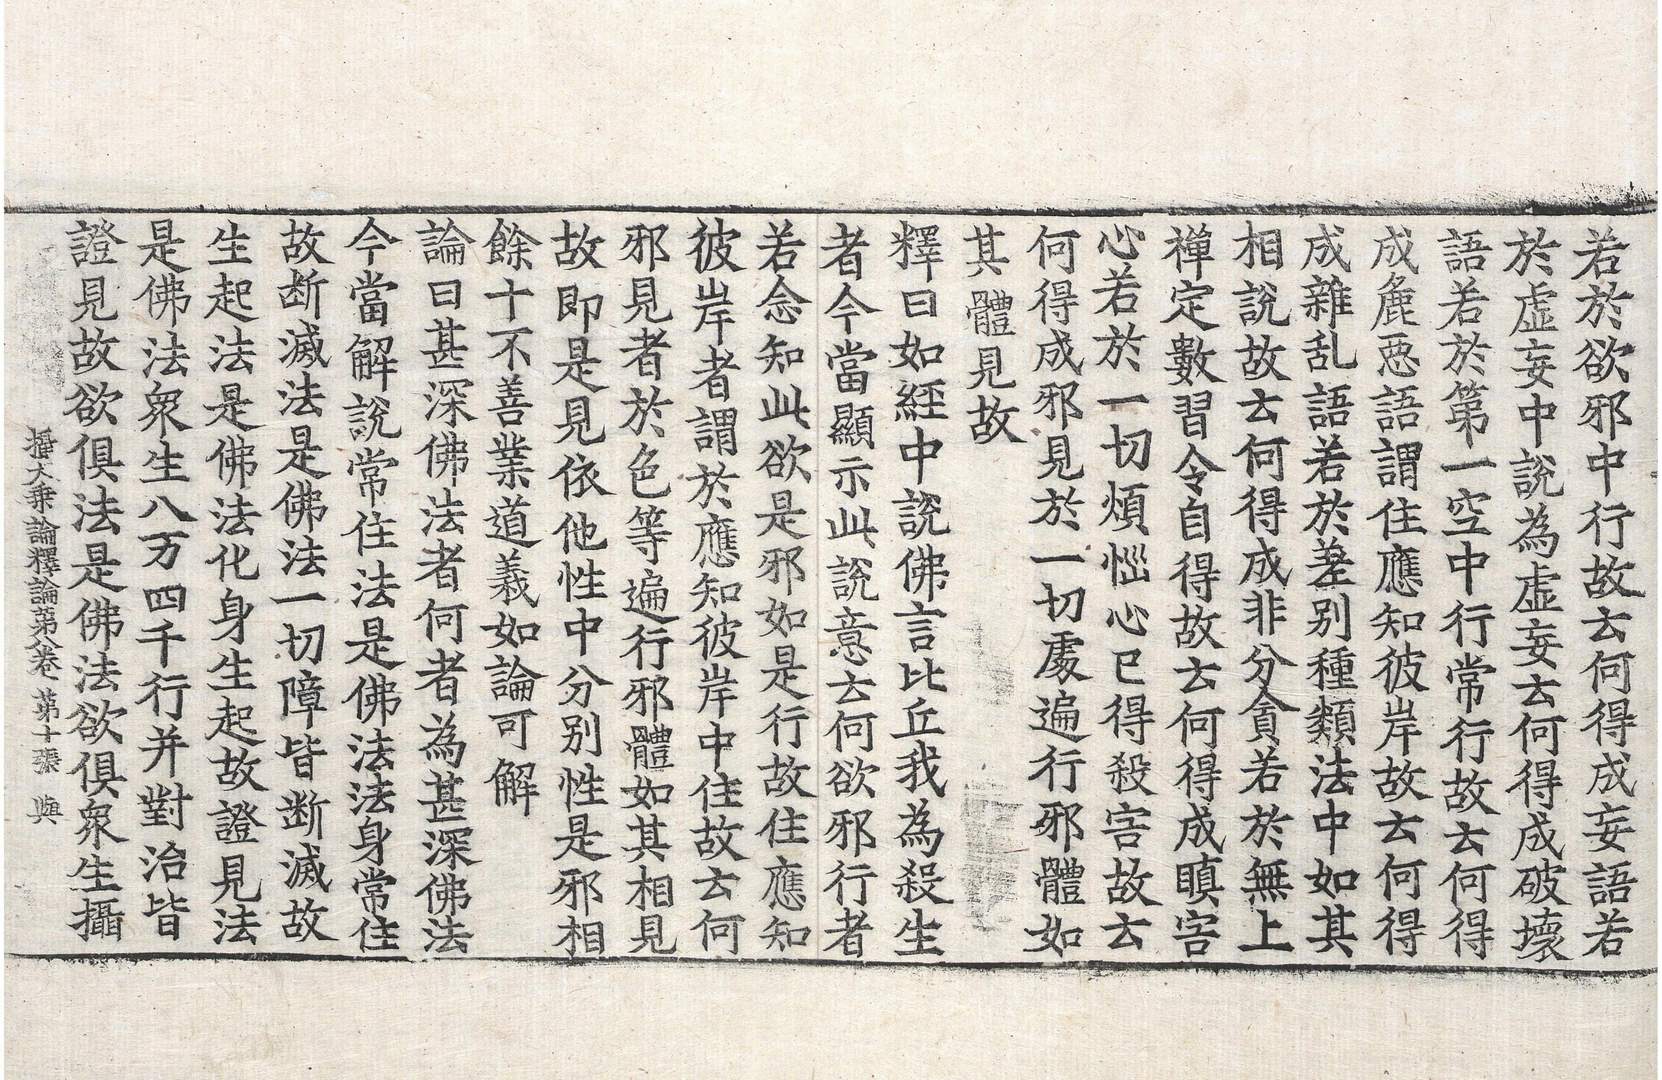 若於欲邪中行故去何得成妄語若
於虛妄中說為虛妄去何得成破壞
語若於第一空中行常行故去何得
成麁惡語謂住應知彼岸故去何得
成雜乱語若於差別種類法中如其
相說故去何得成非分貪若於無上
禪定數習令自得故去何得成瞋害
心若於一切煩惱心已得殺害故去
何得成邪見於一切處遍行邪體如
其體見故
釋曰如經中說佛言比丘我為殺生
者今當顯示此說意去何欲邪行者
若念知此欲是邪如是行故住應知
彼岸者謂於應知彼岸中住故去何
邪見者於色等遍行邪體如其相見
故即是見依他性中分別性是邪相
餘十不善業道義如論可解
論曰甚深佛法者何者為甚深佛法
今當解說常住法是佛法法身常住
故断滅法是佛法一切障皆断滅故
生起法是佛法化身生起故證見法
是佛法眾生八万四千行并對治皆
證見故欲俱法是佛法欲俱眾生攝
攝大乘論釋論第八卷 第十張 與